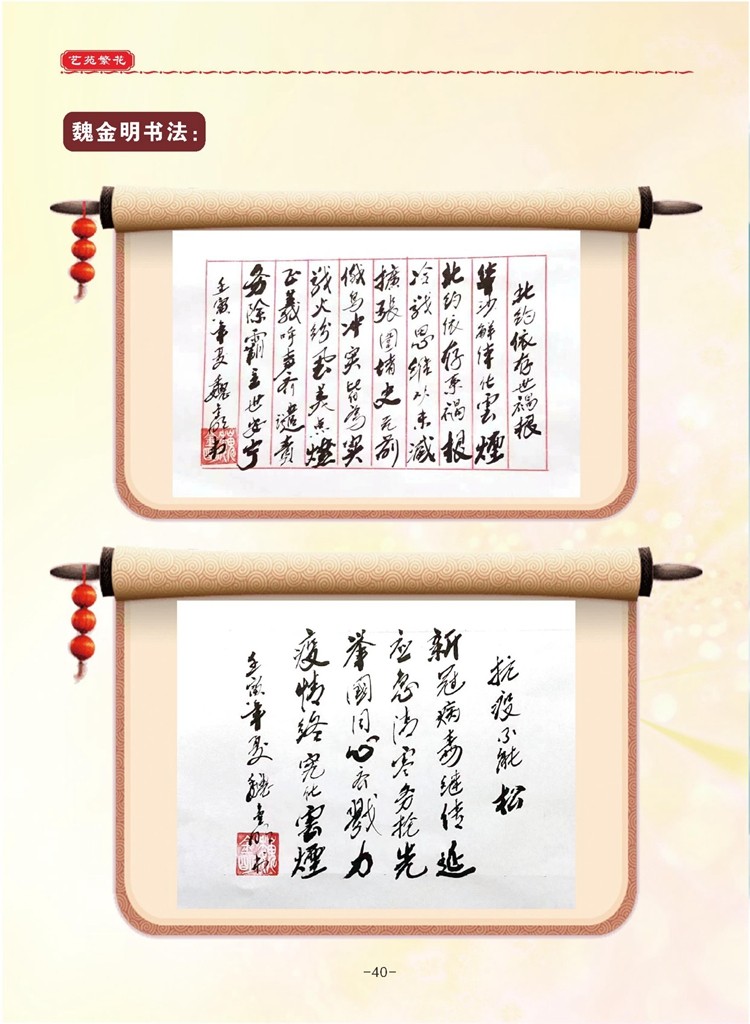 艺苑繁花
魏金明书法：
北约依存世祸根
华沙解体化雲煙
北约依存系祸根
冷战思维从未减
擴張圍堵史无前
俄乌冲突皆为
战火纷雲美点燃
正義呼声齐谴责
务除霸主世安宁
壬寅年夏魏金明书
抗疫不能松
新冠病毒继传延
应急清零务抢先
举國同心齐戮力
疫情终究化雲煙
壬寅年夏魏金明书
-40-